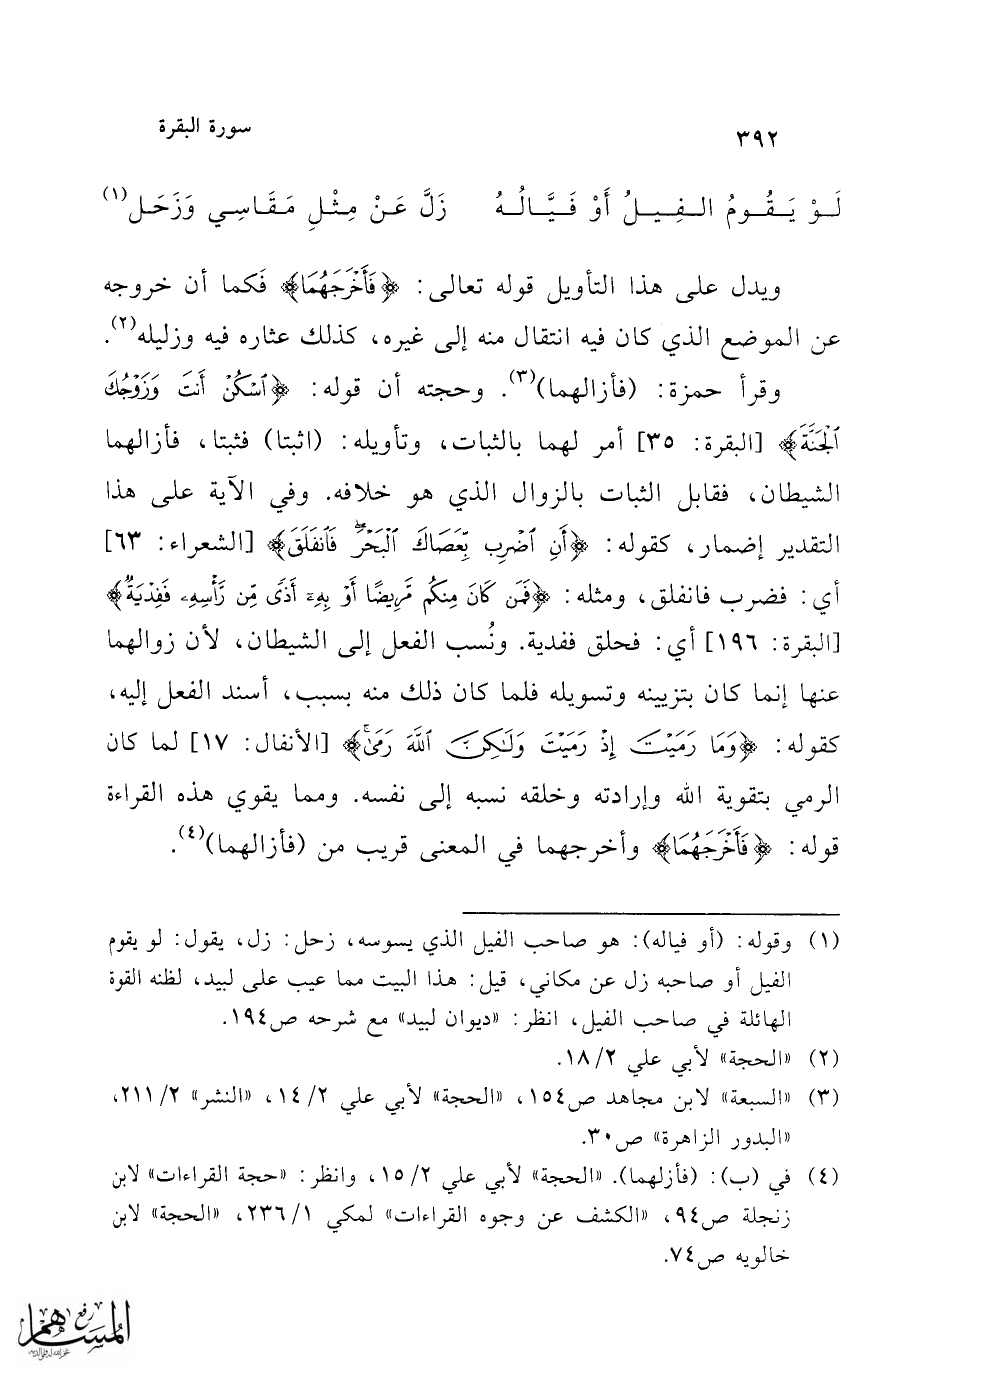 سورة البقرة
٣٩٢
لَوْ يَـقُـومُ الـفِـيـلُ أَوْ فَـيَّـالُـهُ زَلَّ عَـنْ مِثْلِ مَقَـاسِي وَزَحَـل(١)
ويدل على هذا التأويل قوله تعالى: ﴿فَأَخْرَجَهُمَا﴾ فَكما أن خروجه
عن الموضع الذي كان فيه انتقال منه إلى غيره، كذلك عثاره فيه وزليله(٢).
وقرأ حمزة: (فأزالهما)(٣). وحجته أن قوله: ﴿ٱسْكُنْ أَنتَ وَزَوْجُكَ
ٱلْجَنَّةَ﴾ [البقرة: ٣٥] أمر لهما بالثبات، وتأويله: (اثبتا) فثبتا، فأزالهما
الشيطان، فقابل الثبات بالزوال الذي هو خلافه. وفي الآية على هذا
التقدير إضمار، كقوله: ﴿أَنِ ٱضْرِب بِّعَصَاكَ ٱلْبَحْرَۖ فَٱنفَلَقَ﴾ [الشعراء: ٦٣]
أي: فضرب فانفلق، ومثله: ﴿فَمَن كَانَ مِنكُم مَّرِيضًا أَوْ بِهِۦٓ أَذًى مِّن رَّأْسِهِۦ فَفِدْيَةٌ﴾
[البقرة: ١٩٦] أي: فحلق ففدية. ونُسب الفعل إلى الشيطان، لأن زوالهما
عنها إنما كان بتزيينه وتسويله فلما كان ذلك منه بسبب، أسند الفعل إليه،
كقوله: ﴿وَمَا رَمَيْتَ إِذْ رَمَيْتَ وَلَٰكِنَّ ٱللَّهَ رَمَىٰ﴾ [الأنفال: ١٧] لما كان
الرمي بتقوية الله وإرادته وخلقه نسبه إلى نفسه. ومما يقوي هذه القراءة
قوله: ﴿فَأَخْرَجَهُمَا﴾ وأخرجهما في المعنى قريب من (فأزالهما)(٤).
(١) وقوله: (أو فياله): هو صاحب الفيل الذي يسوسه، زحل: زل، يقول: لو يقوم
الفيل أو صاحبه زل عن مكاني، قيل: هذا البيت مما عيب على لبيد، لظنه القوة
الهائلة في صاحب الفيل، انظر: «ديوان لبيد» مع شرحه ص١٩٤.
(٢) «الحجة» لأبي علي ٢/ ١٨.
(٣) «السبعة» لابن مجاهد ص١٥٤، «الحجة» لأبي علي ٢/ ١٤، «النشر» ٢/ ٢١١،
«البدور الزاهرة» ص٣٠.
(٤) في (ب): (فأزلهما). «الحجة» لأبي علي ٢/ ١٥، وانظر: «حجة القراءات» لابن
زنجلة ص٩٤، «الكشف عن وجوه القراءات» لمكي ١/ ٢٣٦، «الحجة» لابن
خالويه ص٧٤.